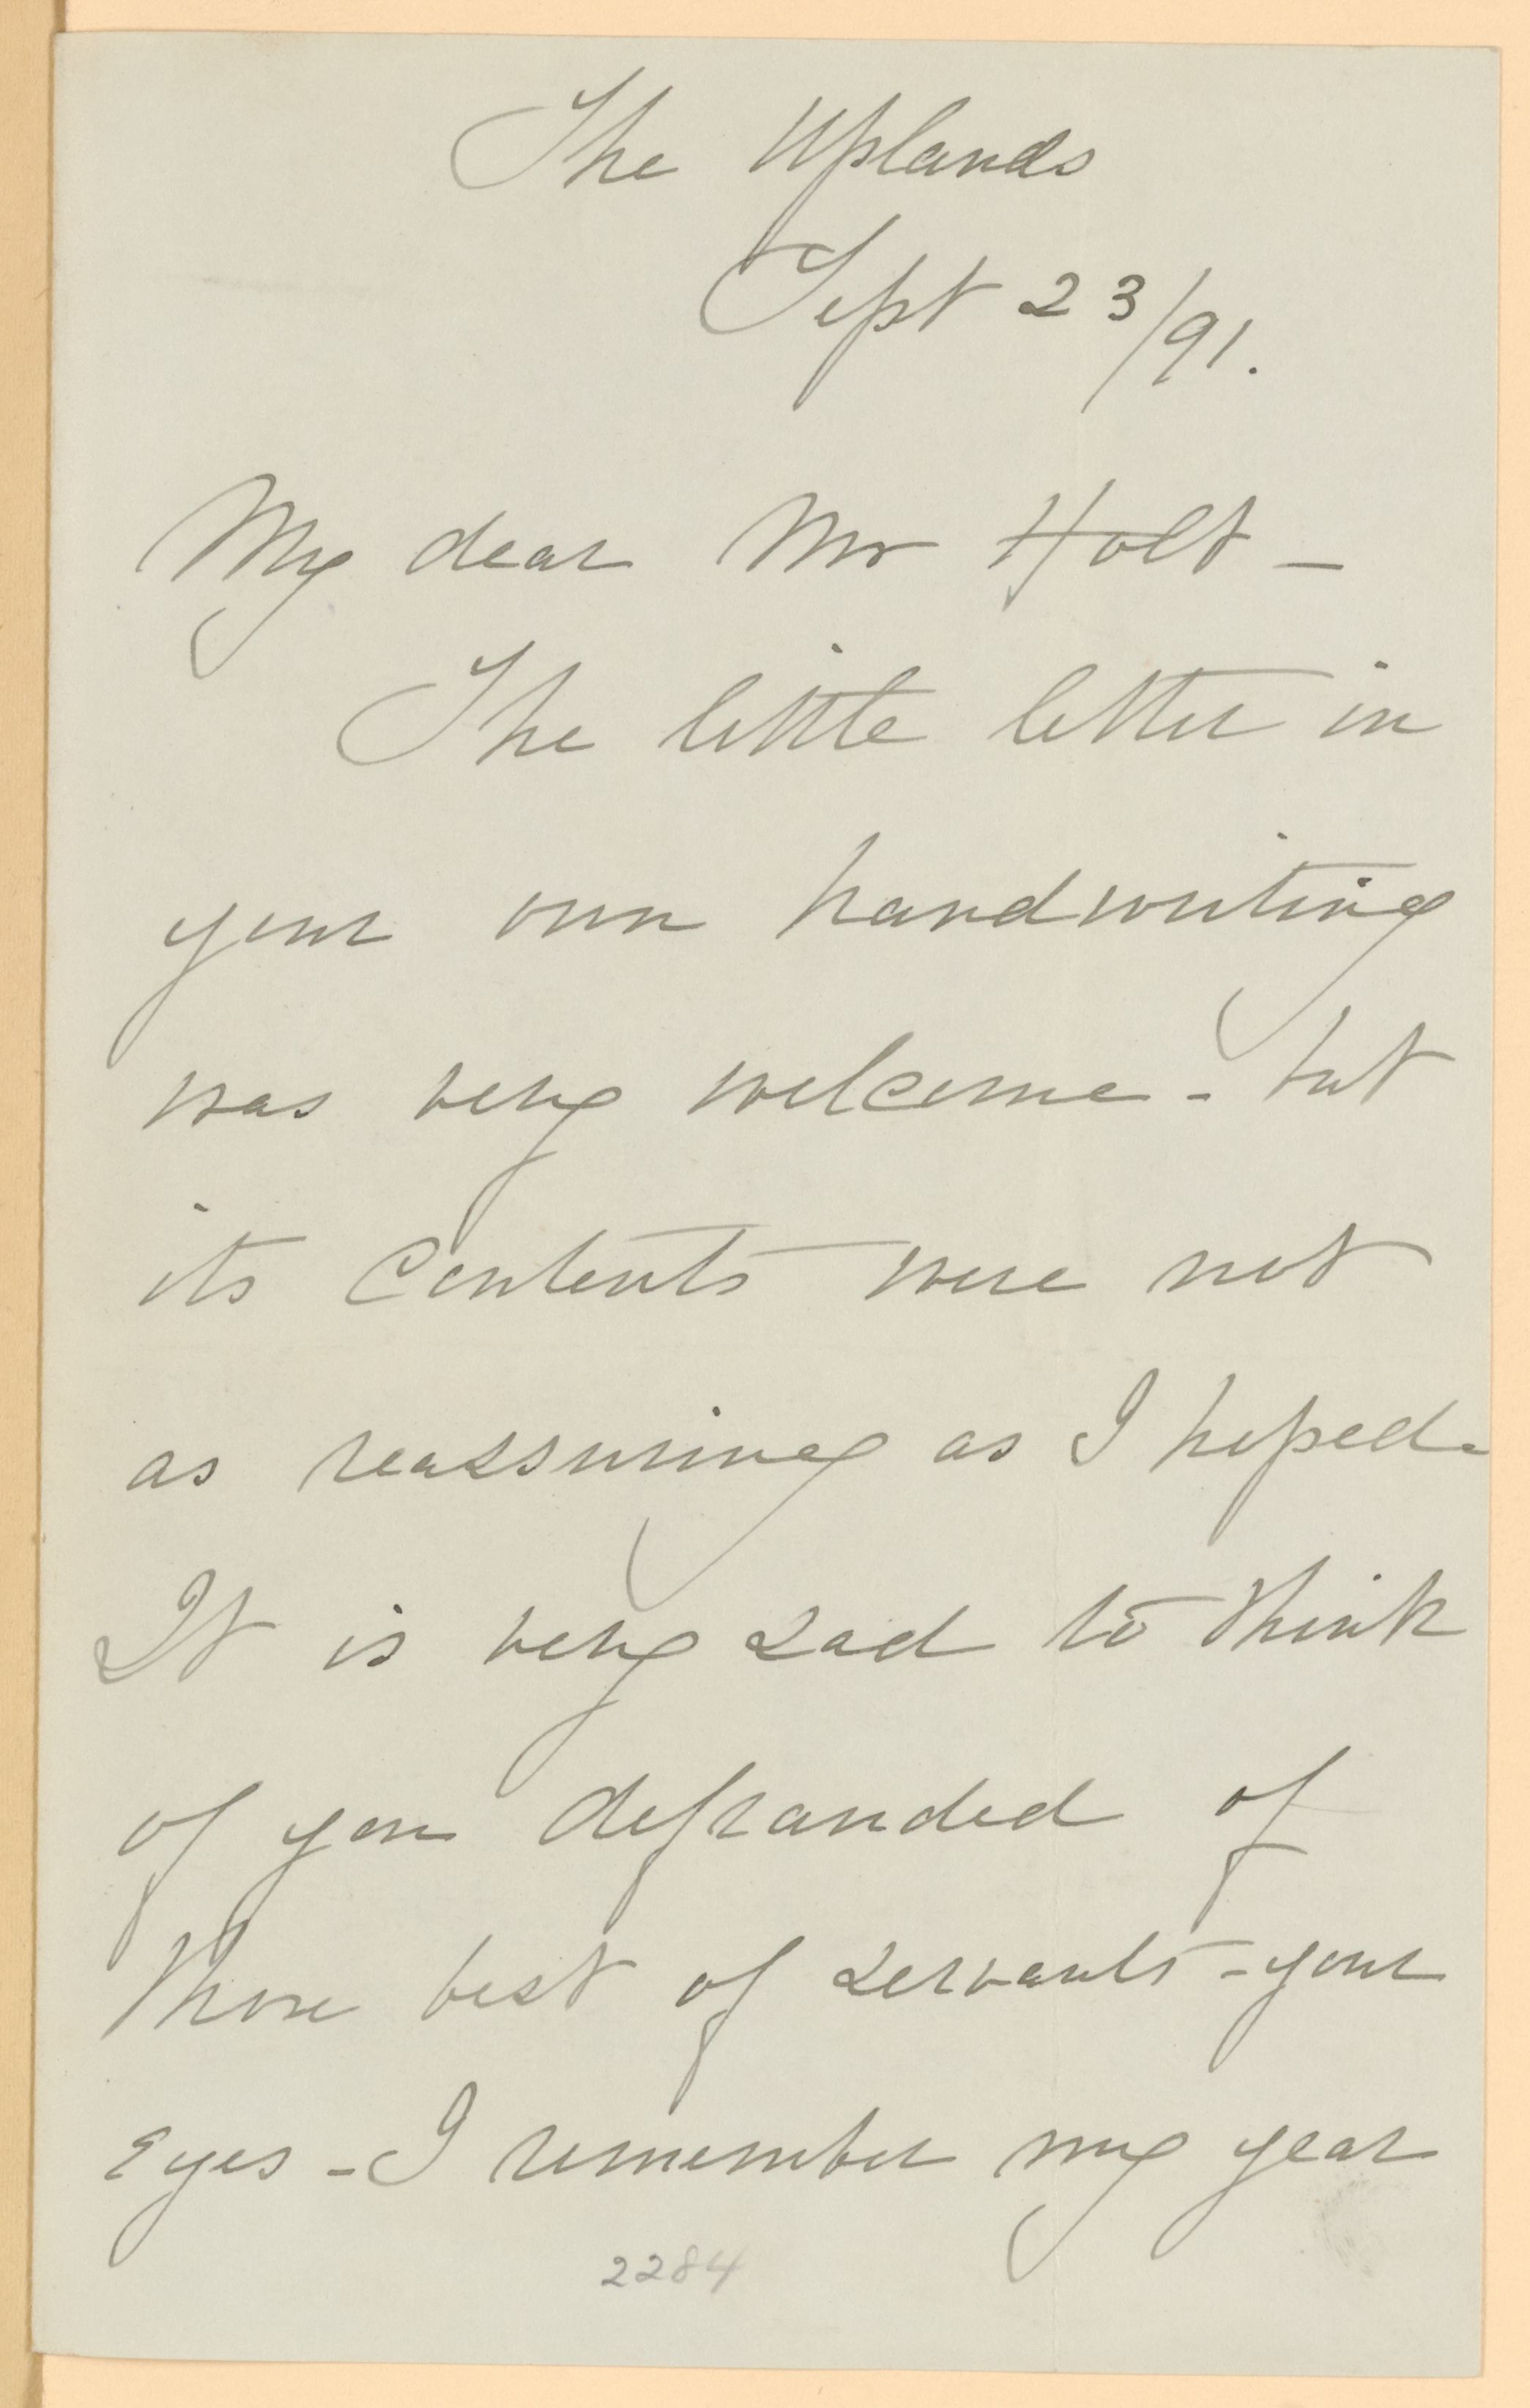 The Uplands
Sept 23/91.
My dear Mr Holt –
The little letter in
your own handwriting
was very welcome - but
its contents were not
as reassuring as I hoped.
It is very sad to think
of you defrauded of
those best of servants - your
eyes - I remember my year
2284